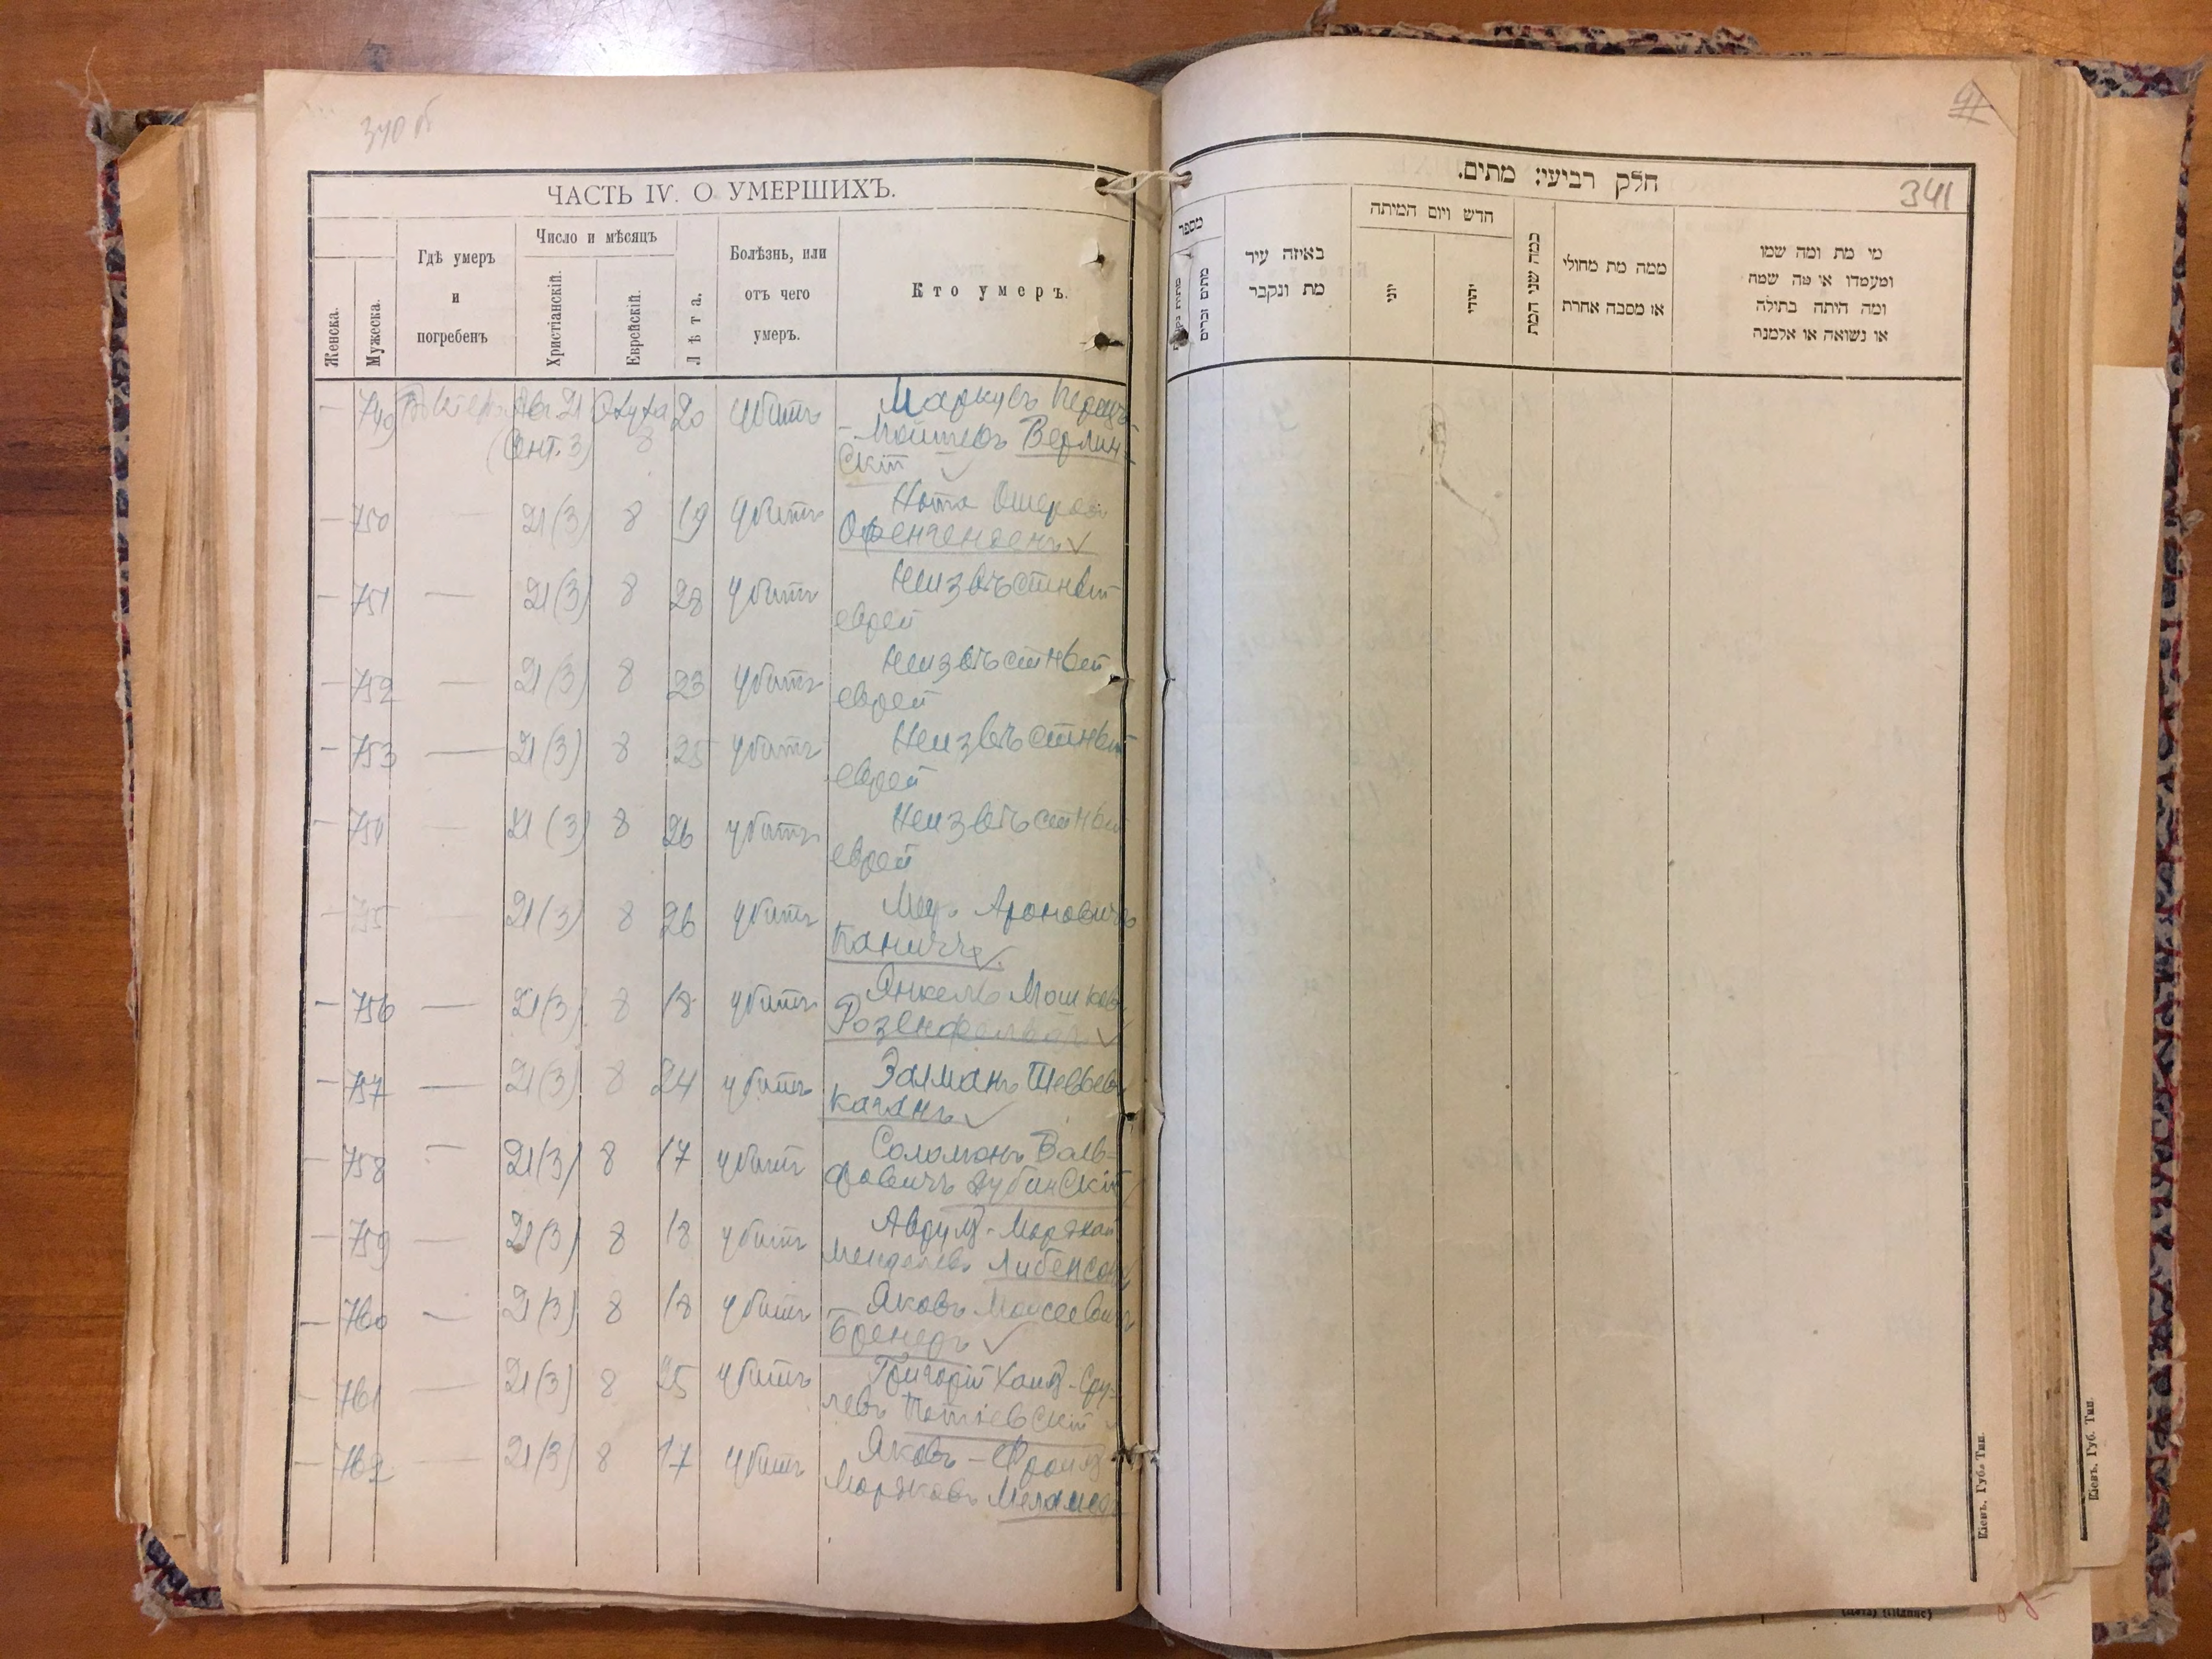 340 об
ЧАСТЬ IV. О УМЕРШИХЪ.
Женска.
Мужеска.
Гдѣ умеръ
и
погребенъ
Число и мѣсяцъ
Христіанскій.
Еврейскій.
Лѣта.
Болѣзнь, или
отъ чего
умеръ.
Кто умеръ.
— 749 Авг. 21 8 20 убитъ Маркусъ
(Сент. 3) Берлин-
скій
— 750 — 21 (3) 8 19 убитъ Нота Ошеровъ
— 751 — 21 (3) 8 28 убитъ Неизвѣстный
еврей
— 752 — 21 (3) 8 23 убитъ Неизвѣстный
еврей
— 753 — 21 (3) 8 25 убитъ Неизвѣстный
еврей
— 754 — 21 (3) 8 26 убитъ Неизвѣстный
еврей
— 755 — 21 (3) 8 26 убитъ Ароновичъ
— 756 — 21 (3) 8 18 убитъ Янкель Мошков
Розенфельдъ
— 757 — 21 (3) 8 24 убитъ Залманъ Тевьев
Каганъ
— 758 — 21 (3) 8 17 убитъ Соломонъ Воль-
фовичъ Дубинскій
— 759 — 21 (3) 8 18 убитъ Аврумъ-Мордхай
Менделевъ Либенсонъ
— 760 — 21 (3) 8 18 убитъ Яковъ Моисеевичъ
Бренеръ
— 761 — 21 (3) 8 25 убитъ Григорій Хаимъ-Сру-
левъ Потіевскій
— 762 — 21 (3) 8 17 убитъ Яковъ-Фроимъ
Мордковъ Меламедъ
341
חלק רביעי: מתים.
מספר
מתים זכרים
באיזה עיר
מת ונקבר
חדש ויום המיתה
יוני
יהודי
במה שני המת
ממה מת מחולי
או מסבה אחרת
מי מת ומה שמו
ומעמדו או מה שמה
ומה היתה בתולה
או נשואה או אלמנה
Кіевъ. Губ. Тип.
Кіевъ. Губ. Тип.